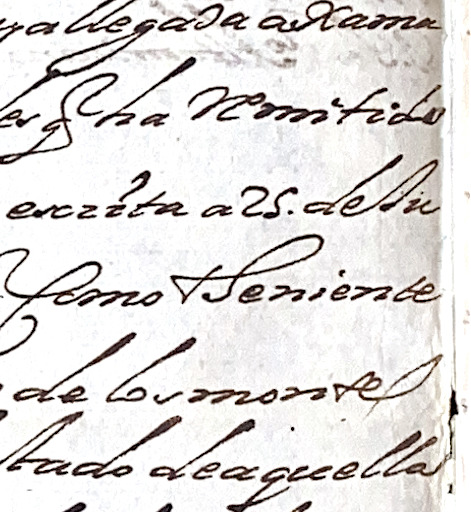 llegada a Xama
les q ha Remitido
escrita a 25. de Su
como Theniente
de los montes
stado de aquella